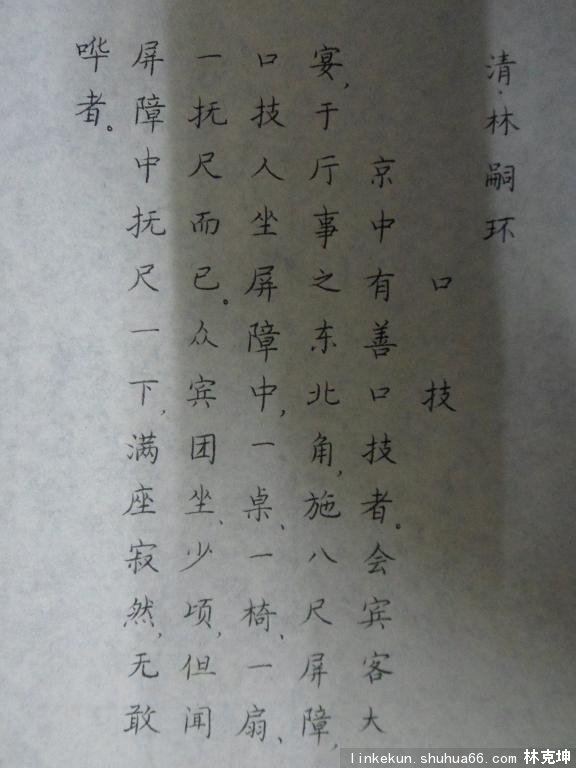 清·林嗣环
口技
京中有善口技者。会宾客大
宴，于厅事之东北角，施八尺屏障，
口技人坐屏障中，一桌、一椅、一扇、
一抚尺而已。众宾团坐、少顷，但闻
屏障中抚尺一下，满座寂然，无敢
哗者。
linekun.shuhua66.com 林克坤